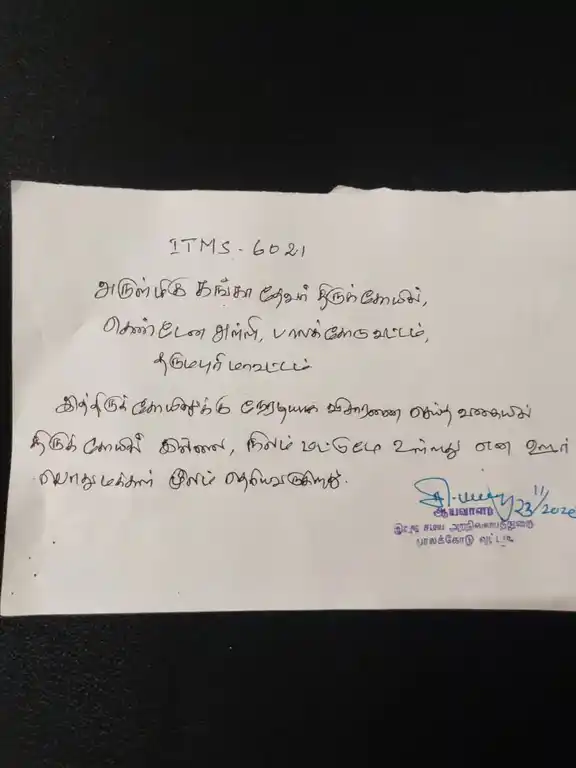 ITMS - 6021
அருள்மிகு கங்கா தேவர் திருக்கோயில்,
கெண்டேன அள்ளி, பாலக்கோடு வட்டம்,
தருமபுரி மாவட்டம்
இத்திருக்கோயிலுக்கு நேரடியாக விசாரணை செய்த வகையில்
திருக்கோயில் இல்லை, நிலம் மட்டுமே உள்ளது என ஊர்
பொதுமக்கள் மூலம் தெரியவருகிறது.
23/11/2020
ஆய்வாளர்
இந்து சமய அறநிலையத்துறை
பாலக்கோடு வட்டம்